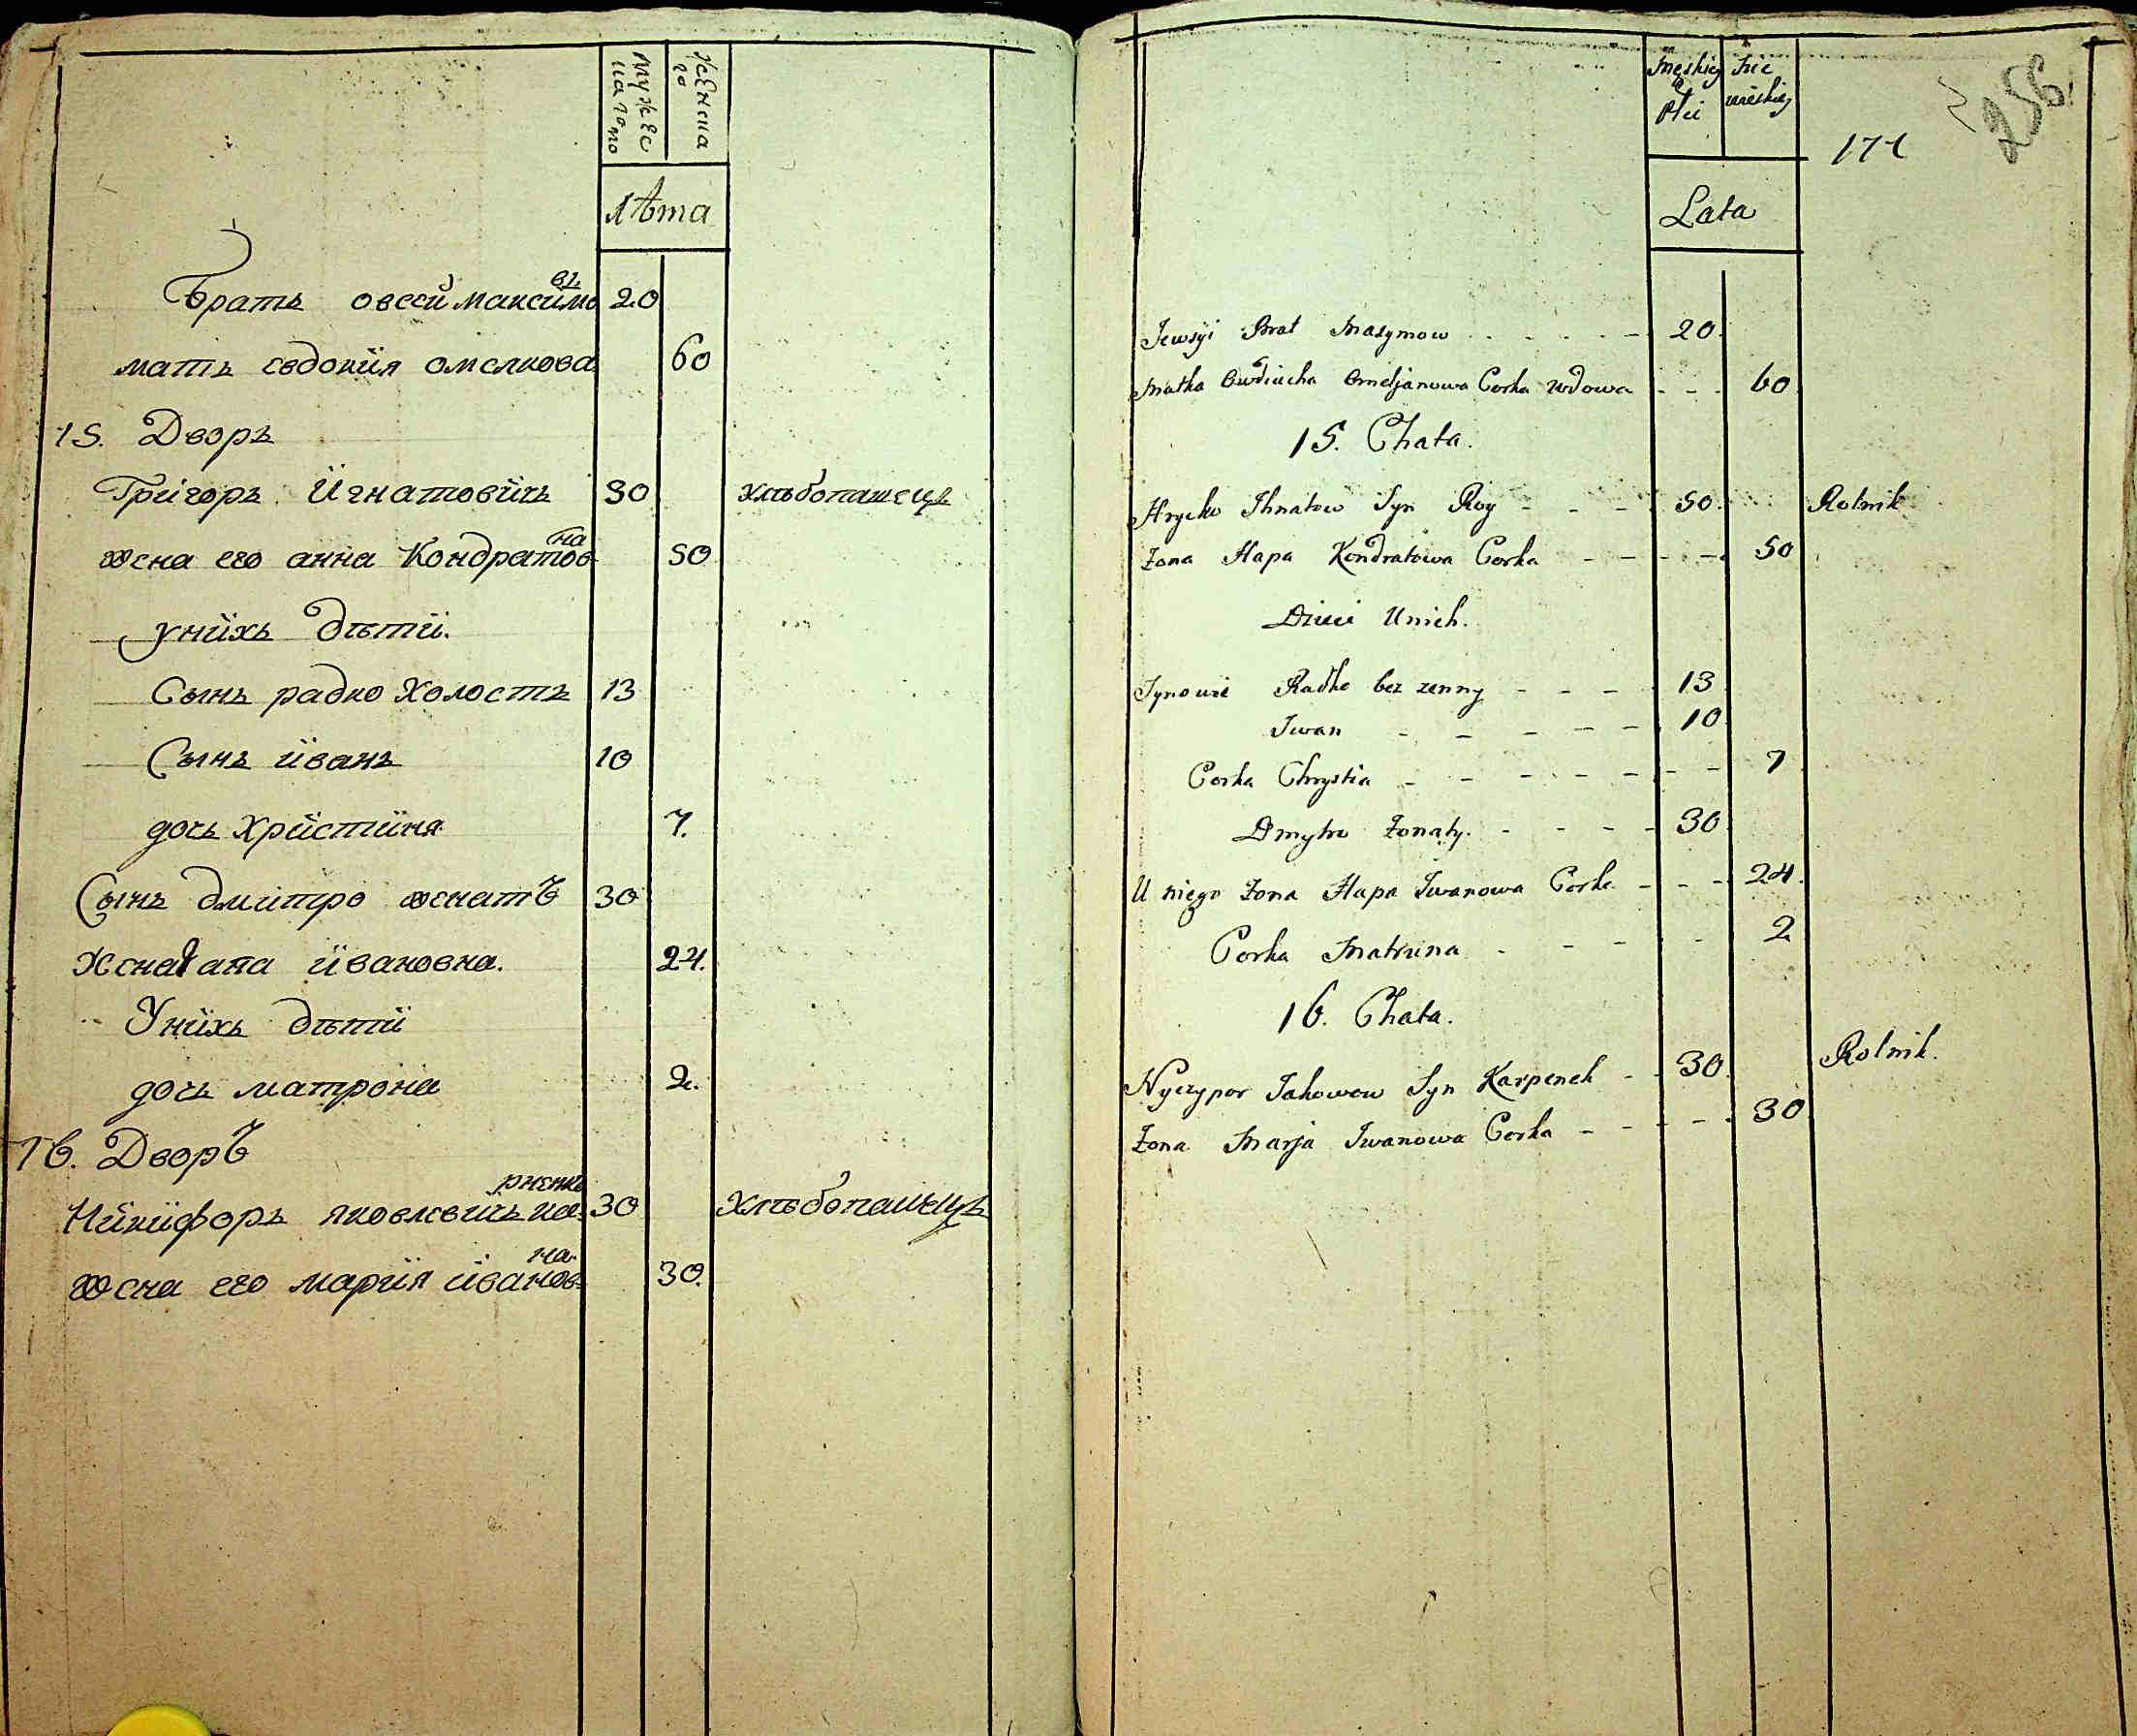 мужес
каго по
женска
го
лѣта
братъ овсей максимо
въ
20
мать евдокия омелкова 60
15. Дворъ
Григоръ Игнатовичь 50 хлѣбопашецъ
жена его анна Кондратов
на
50
унихъ дѣти.
Сынъ радко холостъ 13
Сынъ иванъ 10
дочь христиня 7.
Сынъ дмитро женатъ 30
Жена гапа ивановна. 24.
Унихъ дѣти
дочь матрона 2.
16. Дворъ
Никифоръ яковлевичь ка
рпенко
30 Хлѣбопашецъ
жена его мария иванов
на
30.
Męskiey
Płci
Nie
wieskiey
171
256
Lata
Jewsyi Brat Maxymow 20.
Matka Owdiucha Omeljanowa Corka wdowa 60
15. Chata.
Hrycko Ihnatow Syn Roy 50. Rolnik
Żona Hapa Kondratowa Corka 50
Dzieci Unich.
Synowie Radko bez zenny 13
Iwan 10
Corka Chrystia 7
Dmytro Żonaty. 30
U niego Żona Hapa Iwanowa Corka 24.
Corka Matruna 2
16. Chata.
Nyczypor Jakowow Syn Karpenek 30 Rolnik.
Żona Marja Iwanowa Corka 30